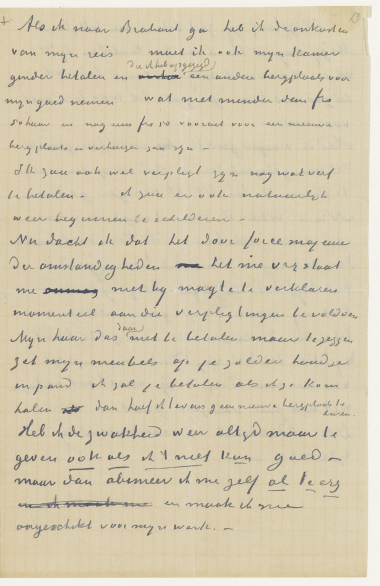 Als ik naar Brabant ga heb ik de onkosten
van mijn reis moet ik ook mijn kamer
ginder betalen en een andere bergplaats voor
die ik heb opgezegd
mijn goed nemen wat met minder dan frs
50 haar en nog eens frs 50 vooruit voor een nieuwe
bergplaats en verhuizen zou zijn –
Ik zou ook wel verpligt zijn nog wat verf
te betalen – ik zou er ook natuurlijk
weer beginnen te schilderen –
Nu dacht ik dat het door force majeure
der omstandigheden het me vrij staat
me niet bij magte te verklaren
momenteel aan die verpligtingen te voldoen
Mijn huur dus dan niet te betalen maar te zeggen
zet mijn meubels op je zolder houd ze
in pand ik zal je betalen als ik ze kom
halen dan hoef ik tevens geen nieuwe bergplaats te
huren.
Heb ik de zwakheid weer altijd maar te
geven ook als ik 't niet kan goed –
maar dan abimeer ik me zelf al te erg
en maak ik me
ongeschikt voor mijn werk. –